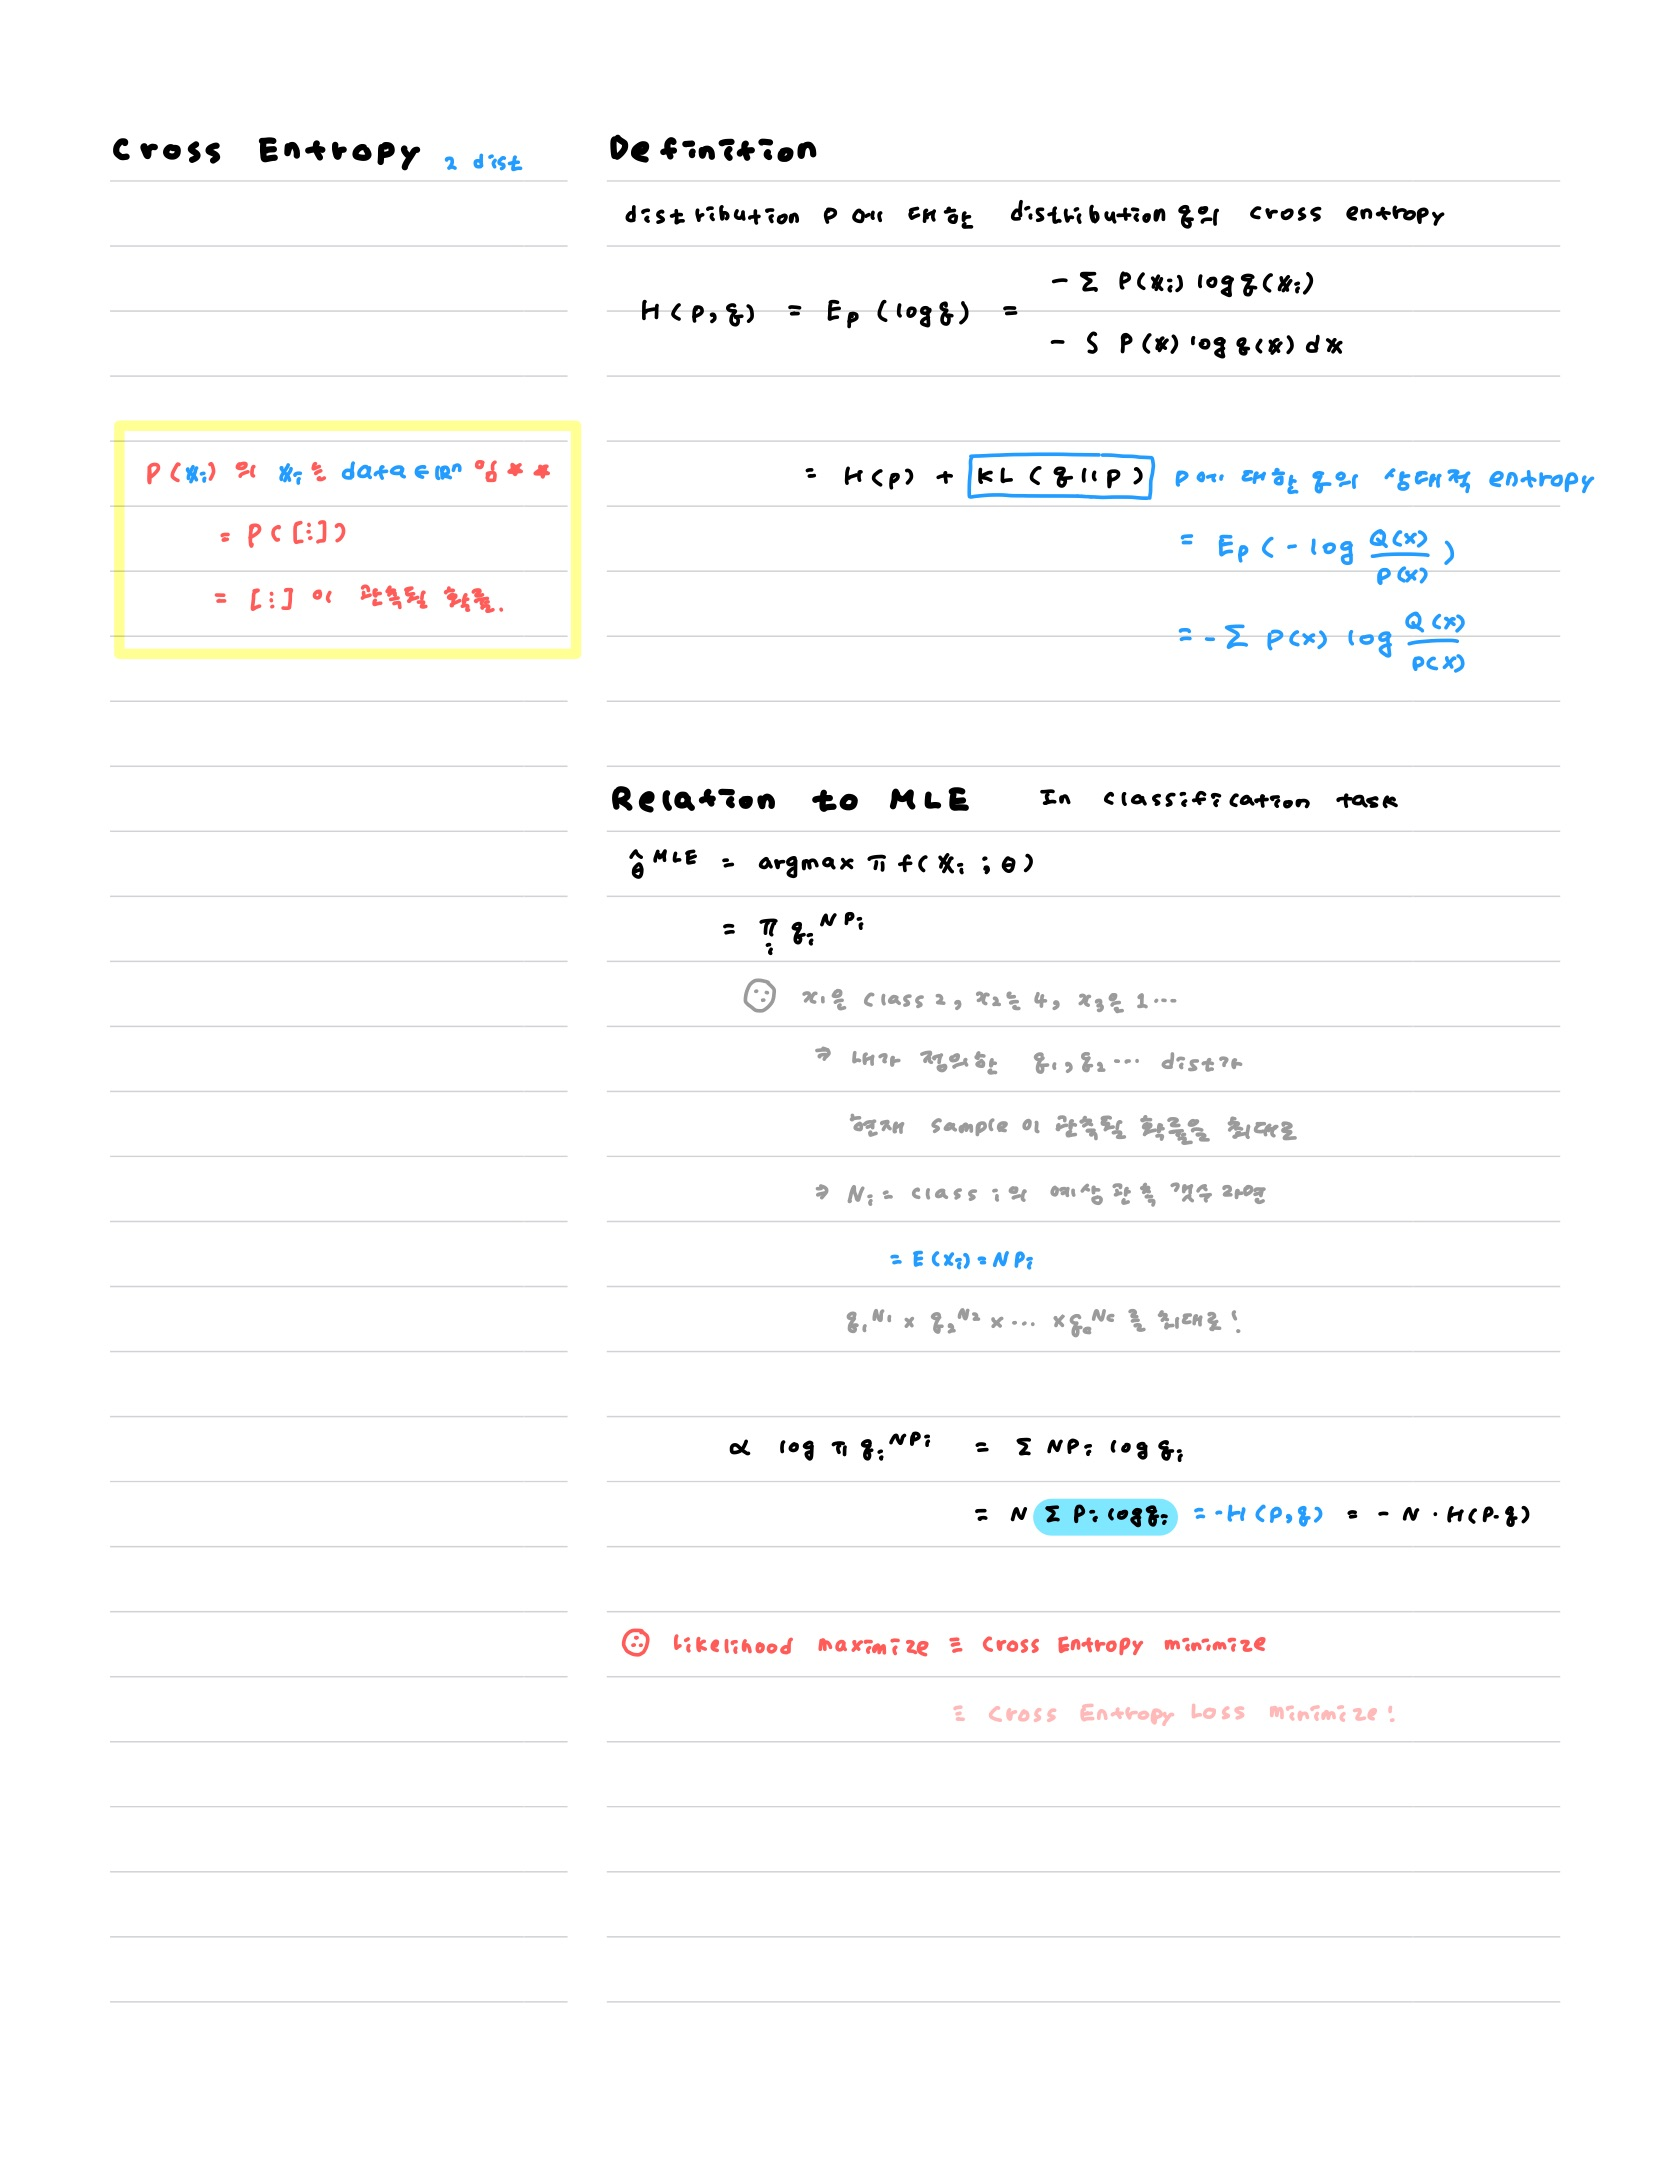 Cross Entropy 2 dist
P(x_i) 의 x_i 는 data ∈ ℝⁿ 임 ★ ★
= P([⋮])
= [⋮] 이 관측될 확률.
Definition
distribution P 에 대한 distribution q의 cross entropy
H(p,q) = E_p (log q) =
- Σ P(x_i) log q(x_i)
- ∫ P(x) log q(x) dx
= H(p) + KL(q||p) P에 대한 q의 상대적 entropy
= E_p(-log Q(x)/P(x))
= -Σ P(x) log Q(x)/P(x)
Relation to MLE In classification task
θ̂^MLE = argmax π f(x_i ; θ)
= π_i q_i^NP_i
x₁은 class 2, x₂는 4, x₃은 1 ...
⇒ 내가 정의한 q₁, q₂ ... dist가
현재 sample이 관측될 확률을 최대로
⇒ N_i = class i의 예상 관측 갯수라면
= E(x_i) = NP_i
q₁^N₁ × q₂^N₂ × ... × q_c^N_c 를 최대로!
∝ log π q_i^NP_i = Σ NP_i log q_i
= N Σ P_i log q_i = -H(p,q) = - N · H(P.q)
Likelihood maximize ≡ Cross Entropy minimize
≡ Cross Entropy Loss minimize!